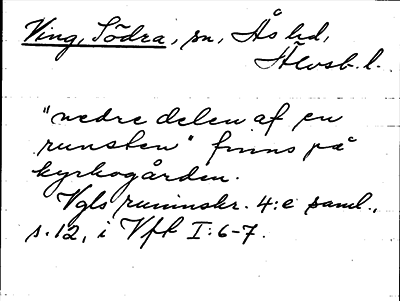 Ving, Södra, sn, Ås hd,
Älvsb. l.
"nedre delen af en
runsten" finns på
kyrkogården.
Vgls runinskr. 4:e saml.,
s. 12, i Vft I:6-7.